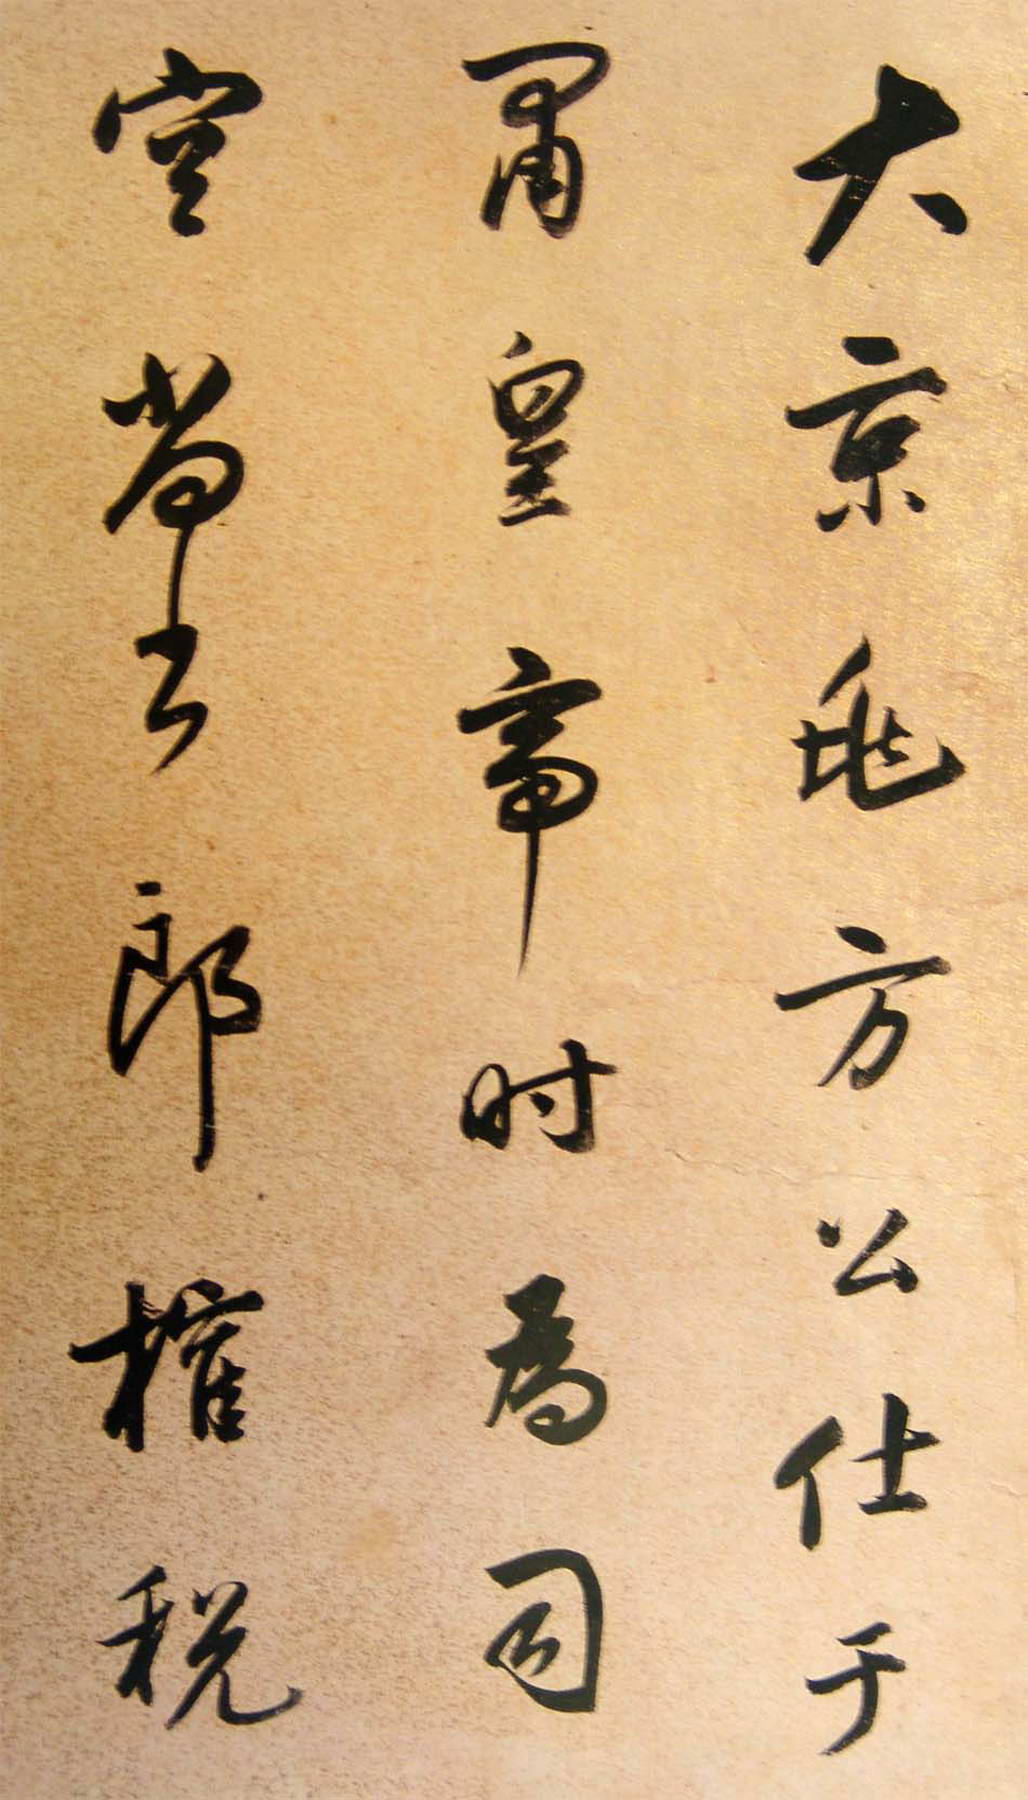 大京兆方公仕于
肅皇帝時為司
空尚書郎榷税